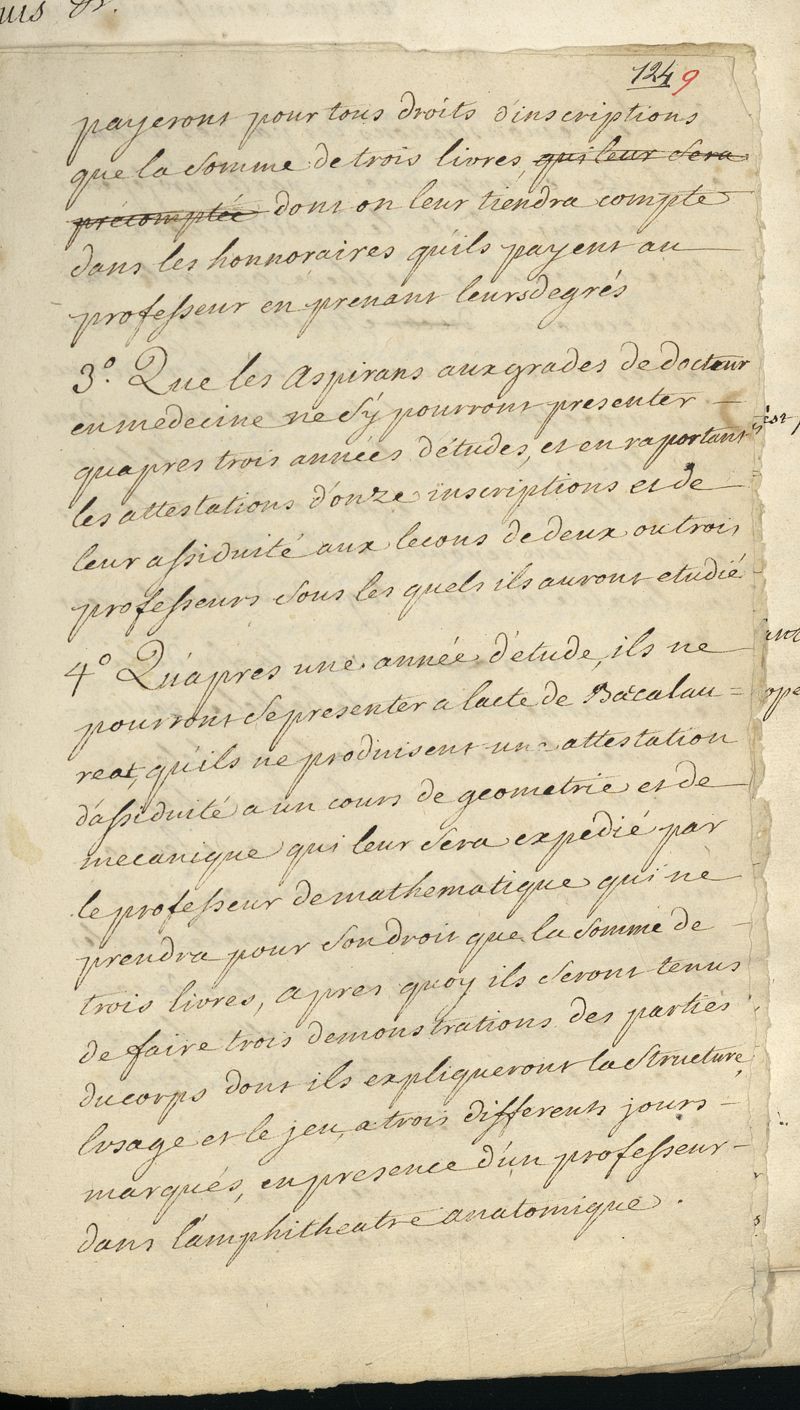 124 9
payeront pour tous droits d'inscriptions
que la somme de trois livres, qui leur sera
précomptée dont on leur tiendra compte
dans les honnoraires qu'ils payent au
professeur en prenant leurs degrés
3°. Que les Aspirans aux grades de docteur
en medecine ne s'y pourront presenter
qu'apres trois années d'études, et en raportant
les attestations d'onze inscriptions et de
leur assiduité aux lecons de deux ou trois
professeurs sous les quels ils auront etudié
4° Qu'apres une année d'étude, ils ne
pourront se presenter a l'acte de Bacalau=
reat, qu'ils ne produisent une attestation
d'assiduité a un cours de geometrie et de
mecanique qui leur sera expedié par
le professeur de mathematique qui ne
prendra pour son droit que la somme de
trois livres, apres quoy ils seront tenus
de faire trois demonstrations des parties
du corps dont ils expliqueront la structure
l'usage et le jeu, a trois differents jours
marqués, en presence d'un professeur
dans l'amphitheatre anatomique.